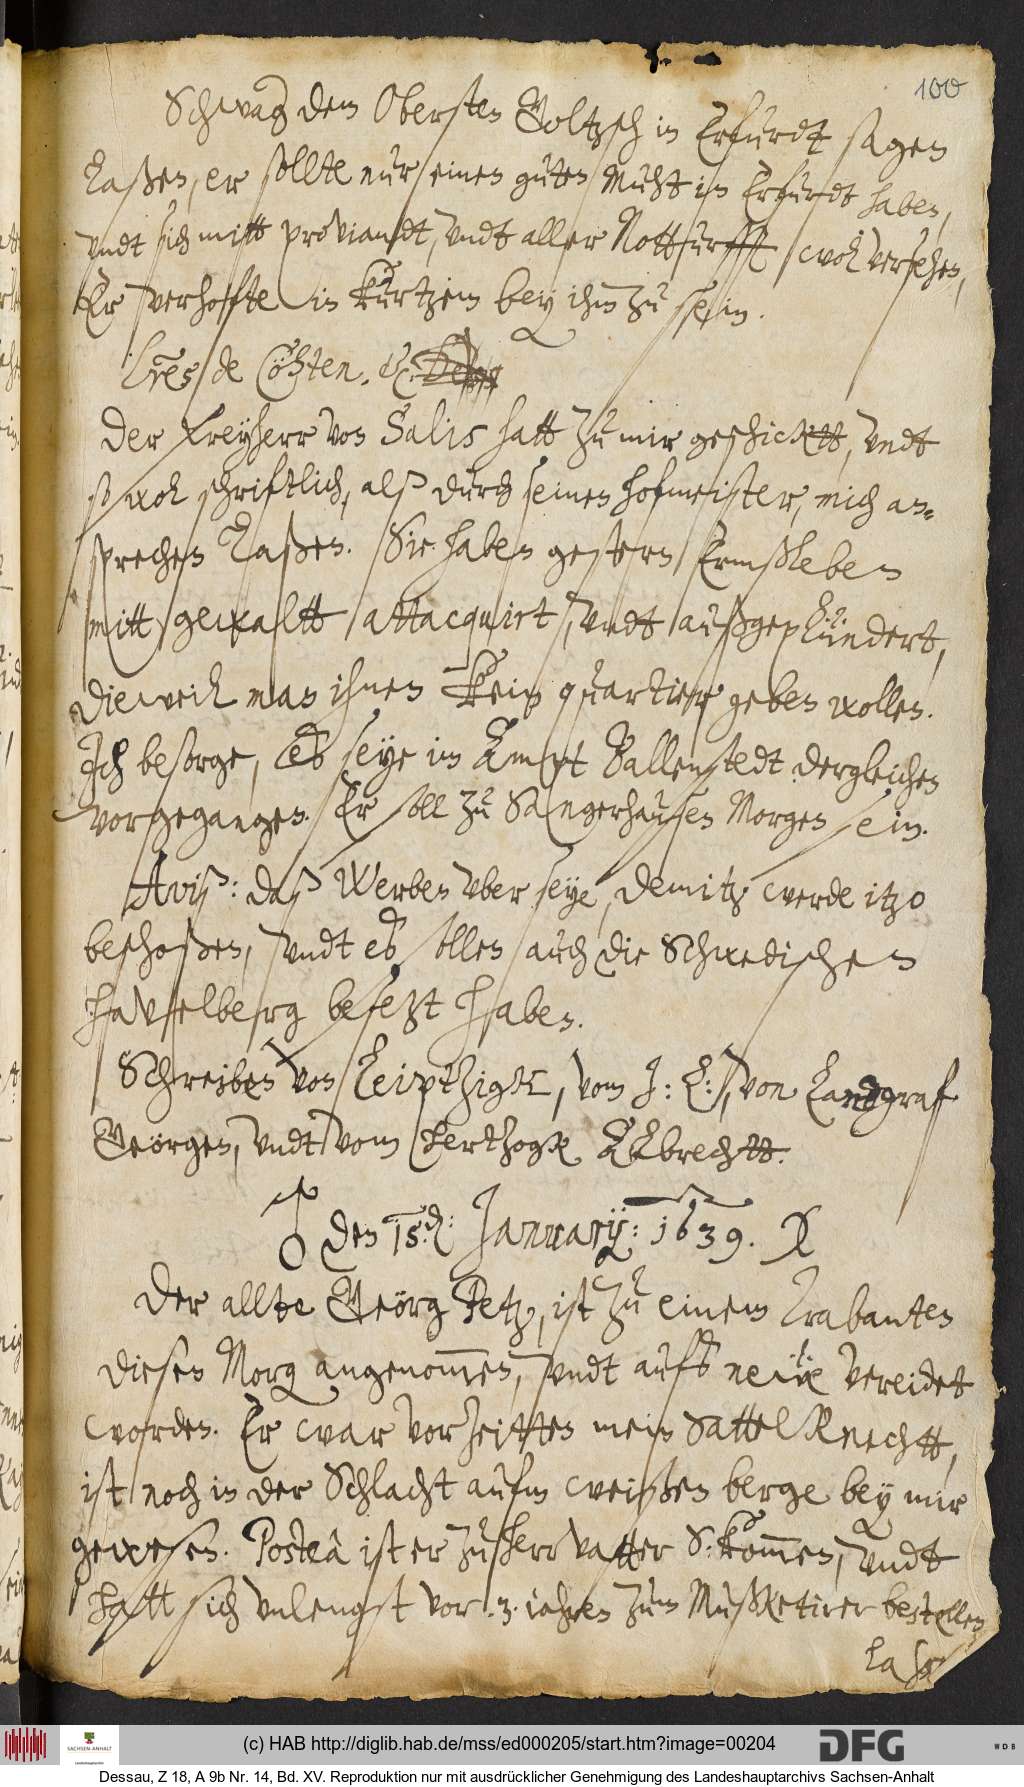 100
Schwag dem Obersten Goltzsch in Erfurdt sagen
laßen, er sollte nur einen guten Muht in Erfurdt haben,
undt sich mitt proviandt, undt aller Nottturfft wol versehen,
Er verhoffte in kurtzem bey ihm zu sein.
Lres de Cöhten, &c.
Der Freyherr von Salis hatt zu mir geschicktt, undt
so wol schriftlich, als durch seinen hofmeister, mich an-
sprechen laßen. Sie haben gestern Ermßleben
mitt gewaltt attacquirt, undt außgeplündert,
dieweil man ihnen kein quartier geben wollen.
Ich besorge, es seye im Ampt Ballenstedt dergleichen
vorgegangen. Er soll zu Sangerhausen Morgen sein.
Aviß: daß Werben vber seye, Demitz werde itzo
beschoßen, undt es sollen auch die Schwedischen
Havelberg besetzt haben.
Schreiben von Leipthigk, vom J: L:, von Landgraf
Geörgen, undt vom Herthogk Albrechtt.
♂ den 15.d: January: 1639.
Der allte Geörg Petz, ist zu einem Trabanten
diesen Morg angenom̅en, undt aufs neüe vereidet
worden. Er war vor zeitten mein Sattel Knechtt,
ist noch in der Schlacht aufm weißen berge bey mir
gewesen. Postea ist er zu herr vatter S: kom̅en, undt
hatt sich unlengst vor .3. iahren zum Mußketirer bestellen
laßen
(c) HAB http://diglib.hab.de/mss/ed000205/start.htm?image=00204
SACHSEN-ANHALT
DFG
WDB
Dessau, Z 18, A 9b Nr. 14, Bd. XV. Reproduktion nur mit ausdrücklicher Genehmigung des Landeshauptarchivs Sachsen-Anhalt